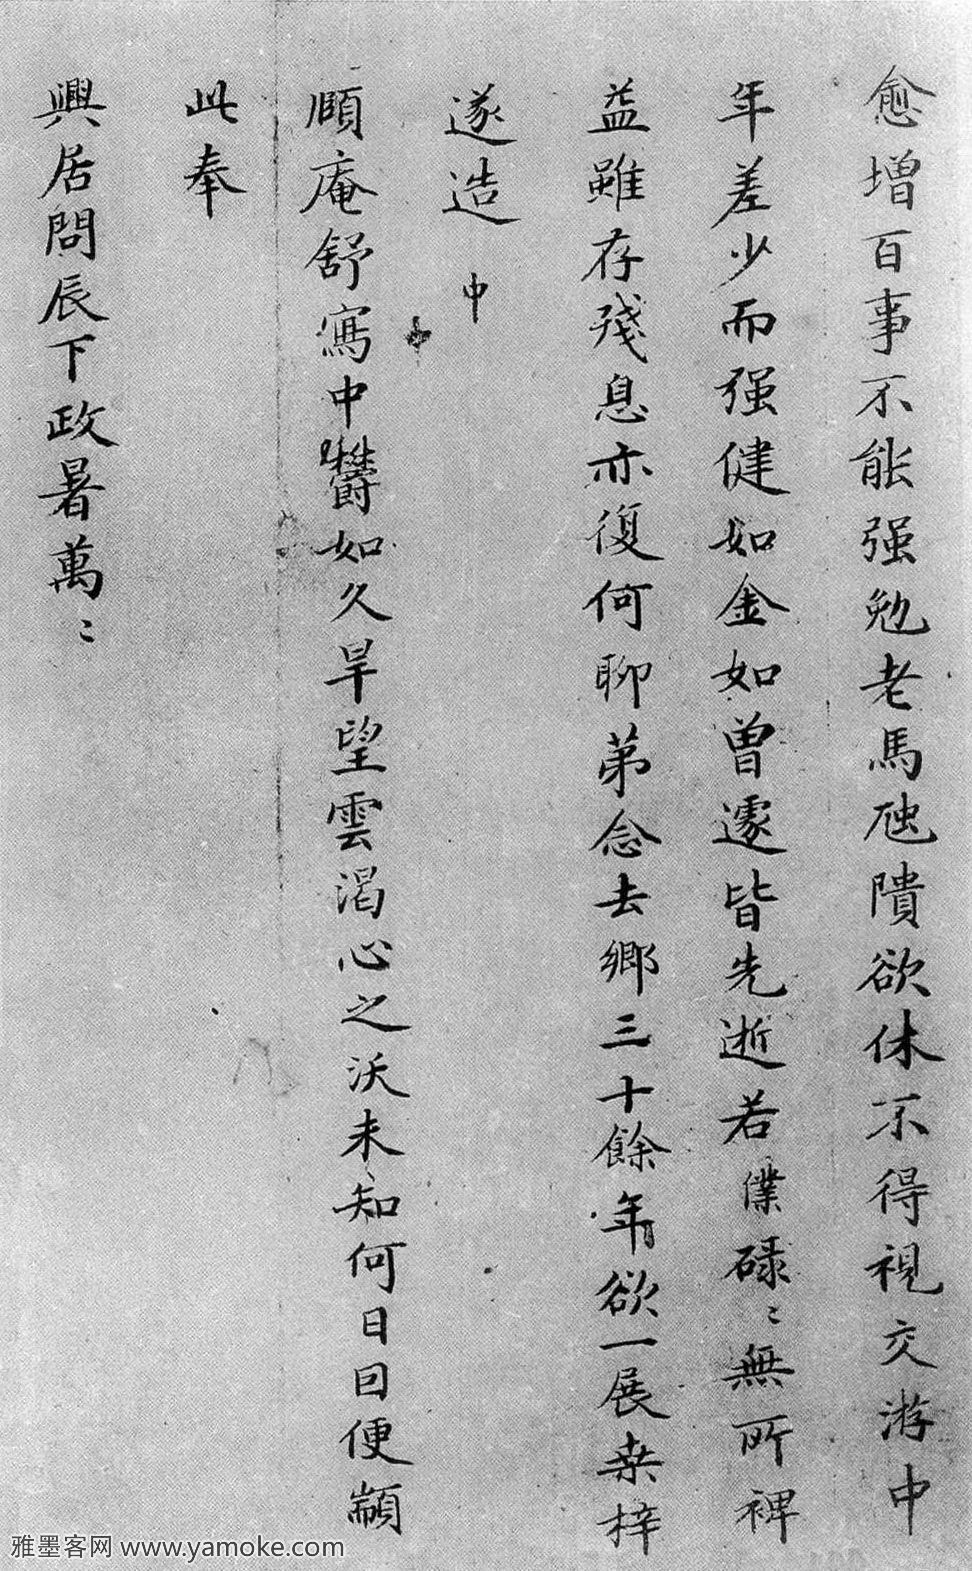 愈增百事不能强勉老馬虺隤欲休不得視交游中
年差少而强健如金如曾遽皆先逝若僕碌〻無所裨
益雖存殘息亦復何聊第念去鄉三十餘年欲一展桒梓
遂造中
頤庵舒寫中欝如久旱望雲渴心之沃未知何日回便顓
此奉
興居問辰下政暑萬〻
雅墨客网 www.yamoke.com